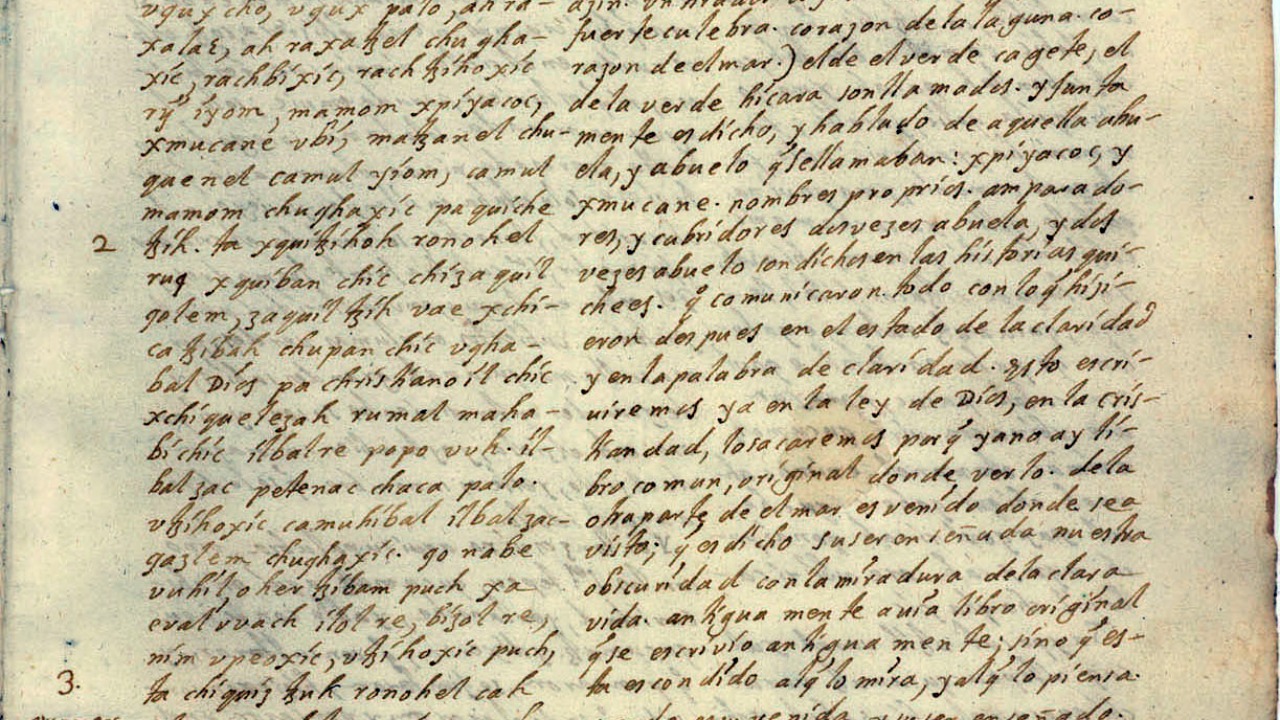 vqux cho, vqux palo, ah ra-
xalaε, ah raxaꜩel chugha-
xic, rachbixic, rachꜩihoxic
rÿ iyom, mamom xpiyacoc,
xmucane vbi, maꜩanel chu-
quenel camul yiom, camul
mamom chughaxic pa quiche
2 ꜩih. ta xquiꜩihoh ronohel
ruq xquiban chic chizaquil
qolem, zaquil ꜩih vae xchi-
caꜩibah chupan chic vgha-
bal Dios pa christianoil chic
xchiquelezah rumal maha-
bi chic ilbalre popo vuh. il-
bal zac petenac chaca palo.
vꜩihoxic camuhibal ilbal zac-
qazlem chughaxic. qo nabe
vuhil, oher ꜩibam puch xa
eval vvach ilol re, bizol re,
nim vpeoxic, vꜩihoxic puch,
3. ta chiquiz ꜩuk ronohel cah
fuerte culebra. corazon de la laguna. co-
razon de el mar.) el de el verde cagete, el
de la verde hícara son llamados. y junta
mente es dicho, y hablado de aquella abu-
ela, y abuelo q̃ se llamaban: xpiyacoc, y
xmucane. nombres proprios. amparado-
res, y cubridores dos vezes abuela, y dos
vezes abuelo son dichos en las historias qui-
chees. q̃ comunicaron todo con lo q̃ hizi-
eron despues en el estado de la claridad
y en la palabra de claridad. Esto escri-
uiremos ya en la ley de Dios, en la cris-
tiandad, lo sacaremos porq̃ ya no ay li-
bro comun, original donde verlo. de la
otra parte de el mar es venido donde sea
visto; y es dicho su ser enseñada nuestra
obscuridad con la miradura de la clara
vida. antigua mente auía libro original
q̃ se escrivío antigua mente; sino q̃ es-
ta escondido alq̃ lo mira, y alq̃ lo piensa.